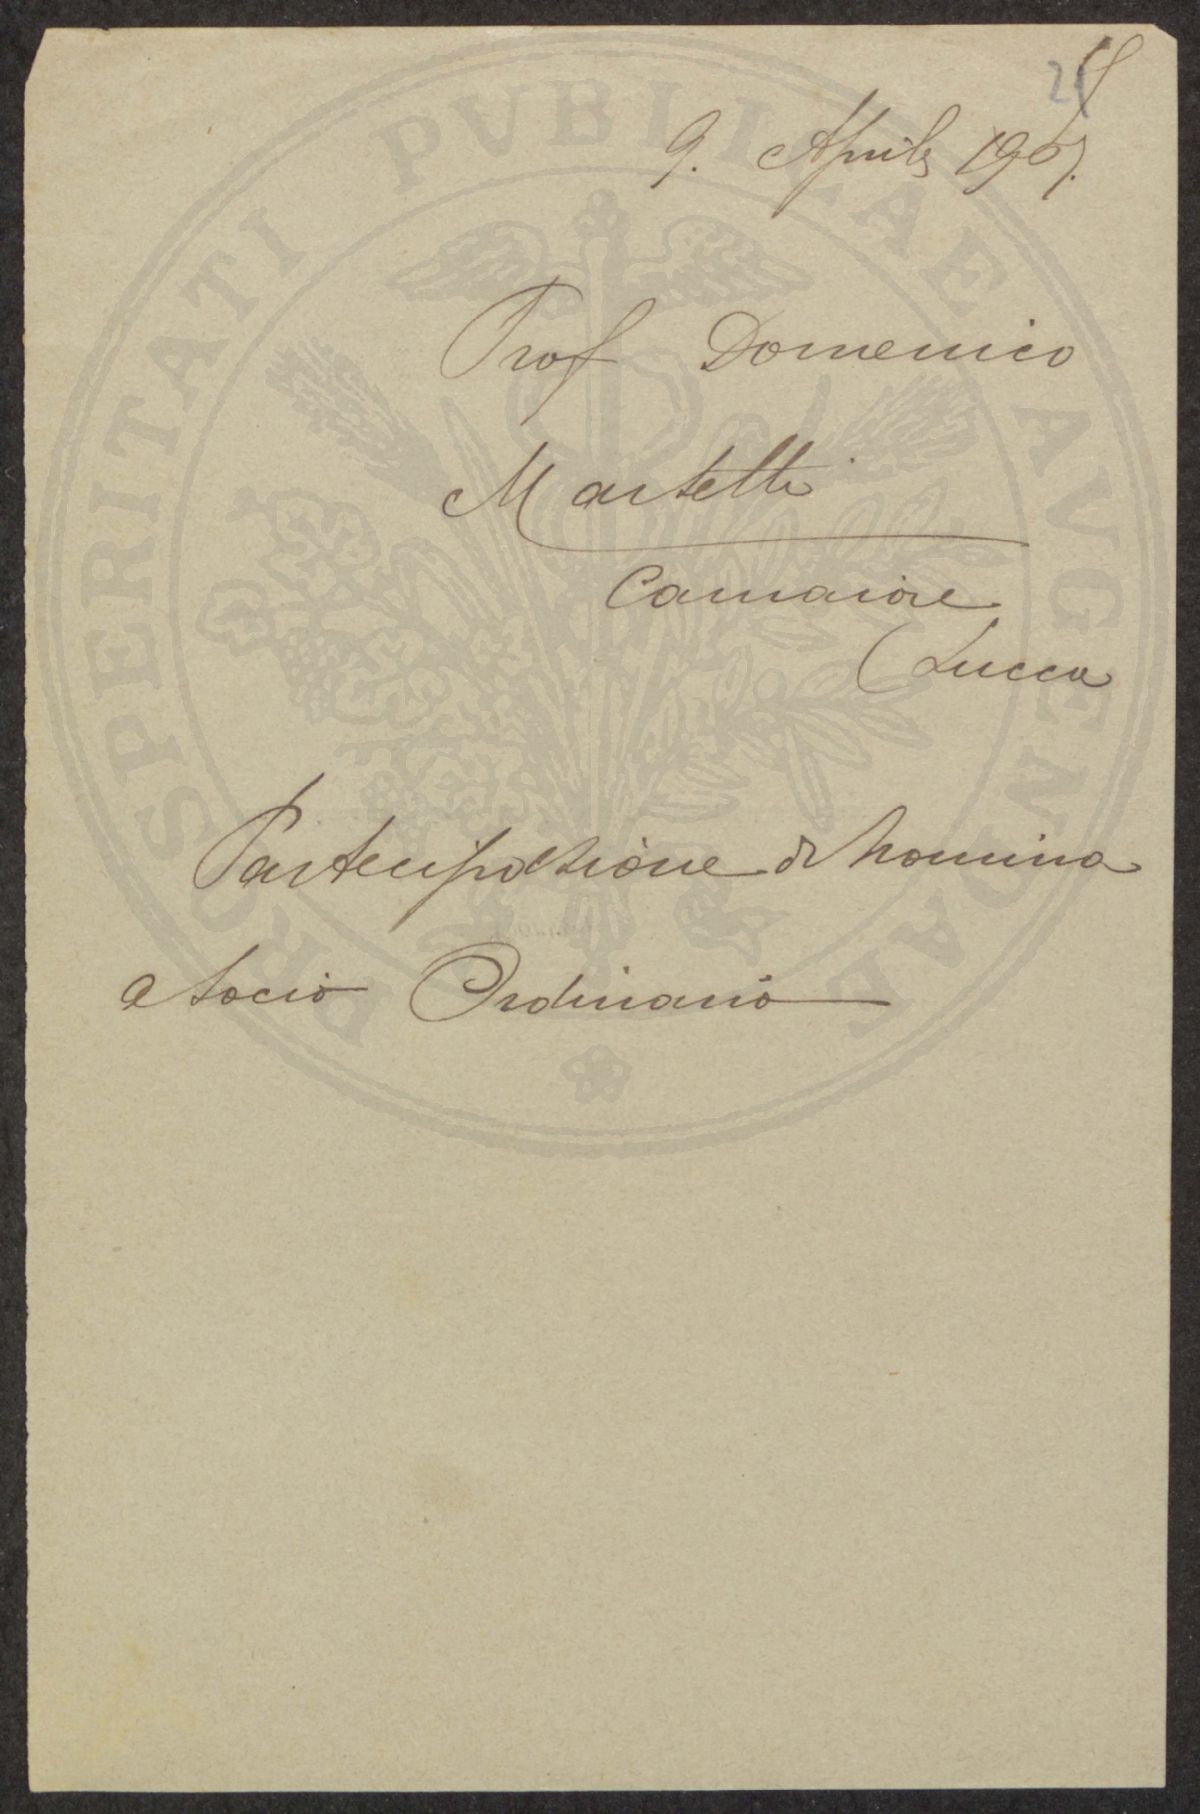 9. Aprile 1907.
Prof Domenico
Martelli
Camaiore
(Lucca
Partecipazione di nomina
a Socio Ordinario
PROSPERITATI PVBLICAE AVGENDAE